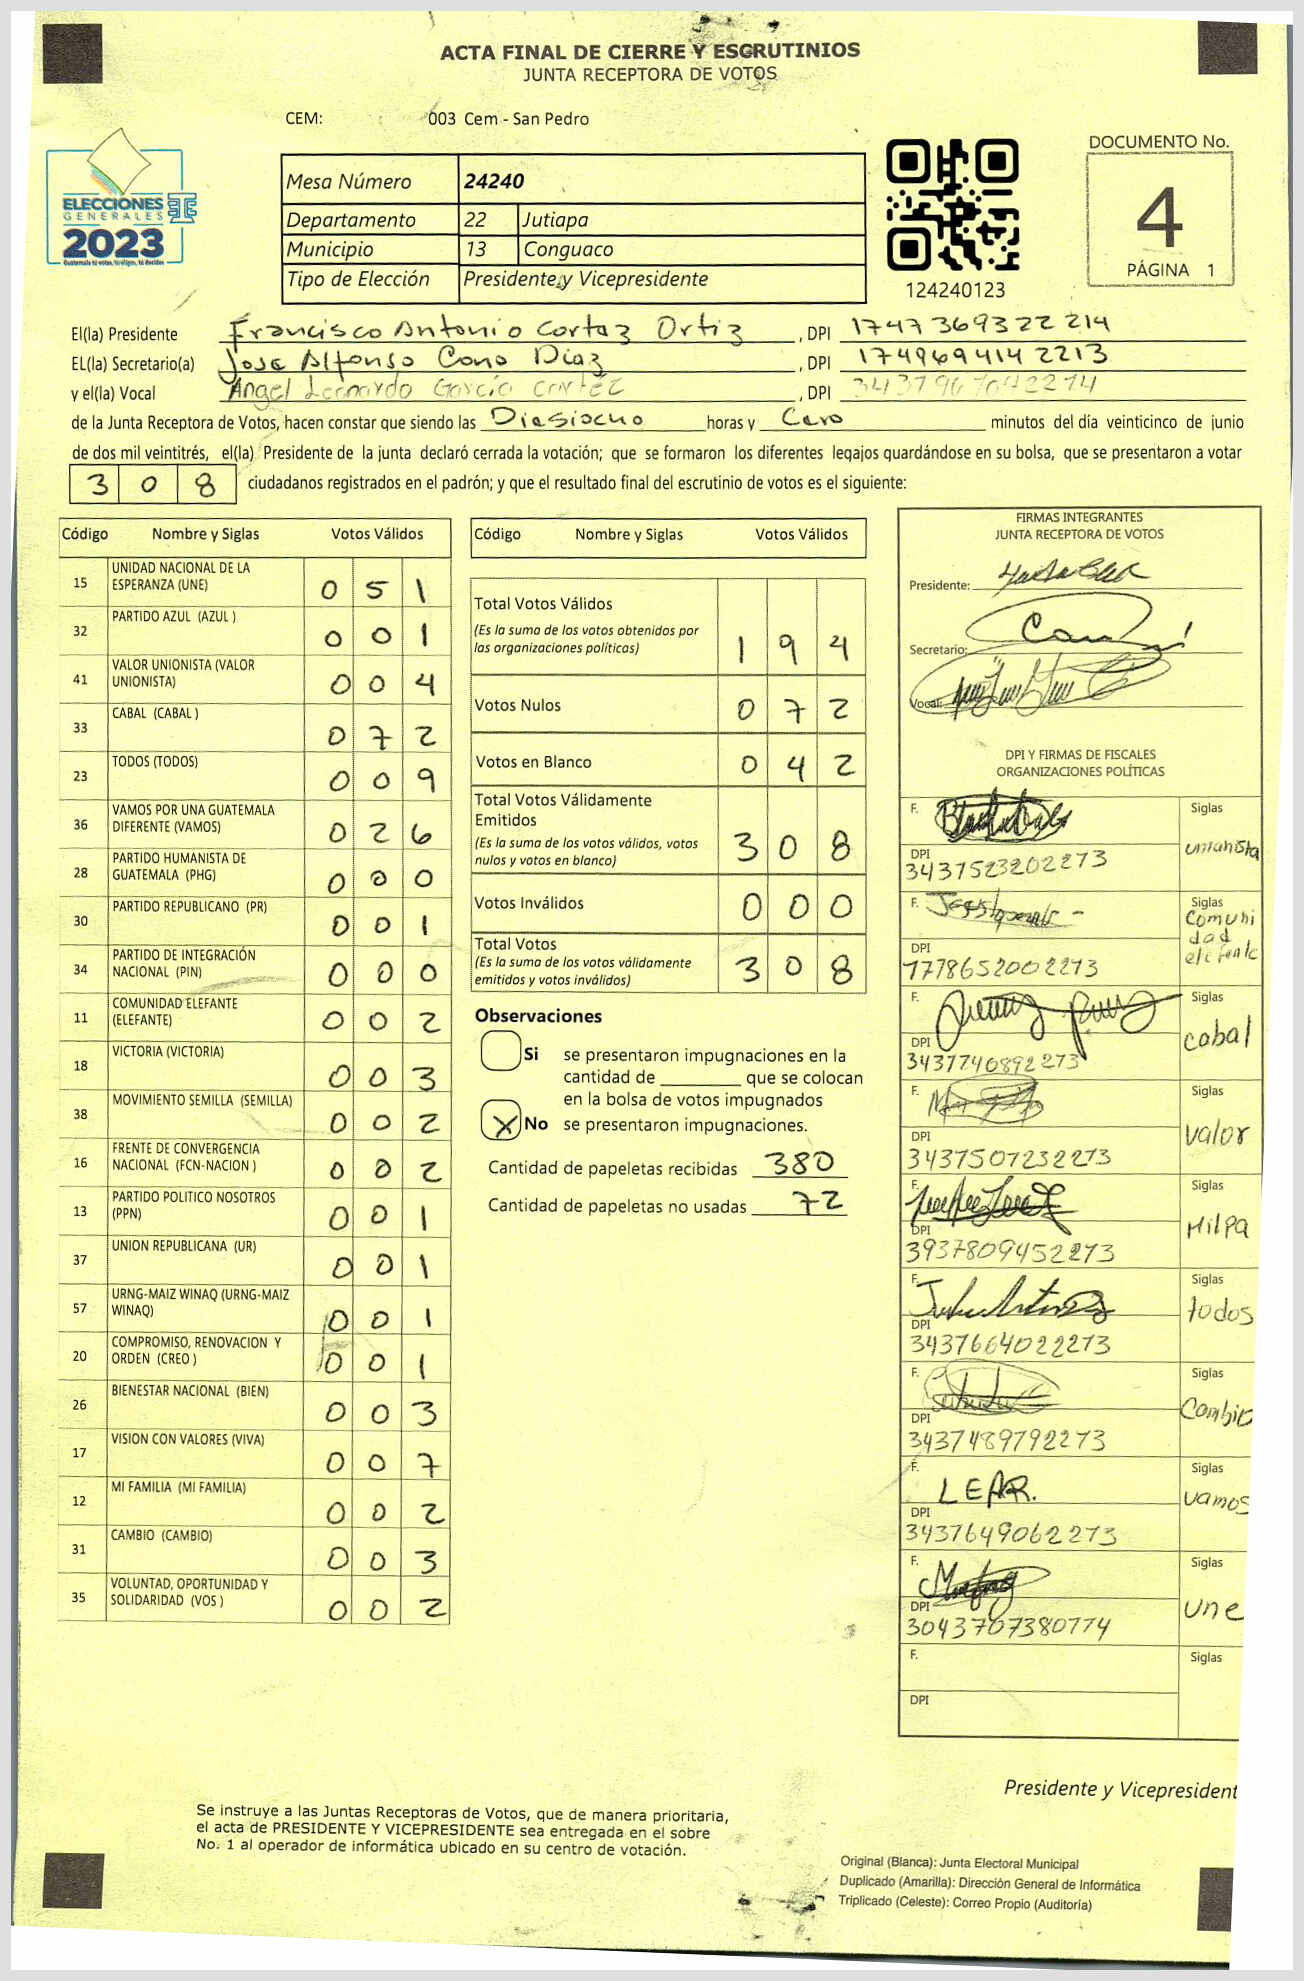 ACTA FINAL DE CIERRE Y ESCRUTINIOS
JUNTA RECEPTORA DE VOTOS
CEM: 003 Cem - San Pedro
DOCUMENTO No.
4
PÁGINA 1
ELECCIONES
GENERALES
2023
Mesa Número 24240
Departamento 22 Jutiapa
Municipio 13 Conguaco
Tipo de Elección Presidente y Vicepresidente
124240123
El(la) Presidente Francisco Antonio Cortaz Ortiz, DPI 1747369322214
EL(la) Secretario(a) Jose Alfonso Cano Diaz, DPI 1749694142213
y el(la) Vocal Angel Leonardo García Cortéz, DPI 3437967042214
de la Junta Receptora de Votos, hacen constar que siendo las Diesiocho horas y Cero minutos del día veinticinco de junio
de dos mil veintitrés, el(la) Presidente de la junta declaró cerrada la votación; que se formaron los diferentes legajos quardándose en su bolsa, que se presentaron a votar
308 ciudadanos registrados en el padrón; y que el resultado final del escrutinio de votos es el siguiente:
Código Nombre y Siglas Votos Válidos
15 UNIDAD NACIONAL DE LA ESPERANZA (UNE) 051
32 PARTIDO AZUL (AZUL ) 001
41 VALOR UNIONISTA (VALOR UNIONISTA) 004
33 CABAL (CABAL ) 072
23 TODOS (TODOS) 009
36 VAMOS POR UNA GUATEMALA DIFERENTE (VAMOS) 026
28 PARTIDO HUMANISTA DE GUATEMALA (PHG) 000
30 PARTIDO REPUBLICANO (PR) 001
34 PARTIDO DE INTEGRACIÓN NACIONAL (PIN) 000
11 COMUNIDAD ELEFANTE (ELEFANTE) 002
18 VICTORIA (VICTORIA) 003
38 MOVIMIENTO SEMILLA (SEMILLA) 002
16 FRENTE DE CONVERGENCIA NACIONAL (FCN-NACION ) 002
13 PARTIDO POLITICO NOSOTROS (PPN) 001
37 UNION REPUBLICANA (UR) 001
57 URNG-MAIZ WINAQ (URNG-MAIZ WINAQ) 001
20 COMPROMISO, RENOVACION Y ORDEN (CREO ) 001
26 BIENESTAR NACIONAL (BIEN) 003
17 VISION CON VALORES (VIVA) 007
12 MI FAMILIA (MI FAMILIA) 002
31 CAMBIO (CAMBIO) 003
35 VOLUNTAD, OPORTUNIDAD Y SOLIDARIDAD (VOS ) 002
Código Nombre y Siglas Votos Válidos
Total Votos Válidos 194
(Es la suma de los votos obtenidos por
las organizaciones políticas)
Votos Nulos 072
Votos en Blanco 042
Total Votos Válidamente
Emitidos 308
(Es la suma de los votos válidos, votos
nulos y votos en blanco)
Votos Inválidos 000
Total Votos 308
(Es la suma de los votos válidamente
emitidos y votos inválidos)
Observaciones
Si se presentaron impugnaciones en la
cantidad de ________ que se colocan
en la bolsa de votos impugnados
X No se presentaron impugnaciones.
Cantidad de papeletas recibidas 380
Cantidad de papeletas no usadas 72
FIRMAS INTEGRANTES
JUNTA RECEPTORA DE VOTOS
Presidente:
Secretario:
Vocal:
DPI Y FIRMAS DE FISCALES
ORGANIZACIONES POLÍTICAS
F. Siglas unianista
DPI 3437523202273
F. Siglas Comunidad elefante
DPI 1778652002273
F. Siglas cabal
DPI 3437740892273
F. Siglas valor
DPI 3437507232273
F. Siglas Milpa
DPI 3937809452273
F. Siglas todos
DPI 3437664022273
F. Siglas Cambio
DPI 3437489792273
F. LEAR. Siglas vamos
DPI 3437649062273
F. Siglas une
DPI 3043707380774
F. Siglas
DPI
Presidente y Vicepresident
Se instruye a las Juntas Receptoras de Votos, que de manera prioritaria,
el acta de PRESIDENTE Y VICEPRESIDENTE sea entregada en el sobre
No. 1 al operador de informática ubicado en su centro de votación.
Original (Blanca): Junta Electoral Municipal
Duplicado (Amarilla): Dirección General de Informática
Triplicado (Celeste): Correo Propio (Auditoría)